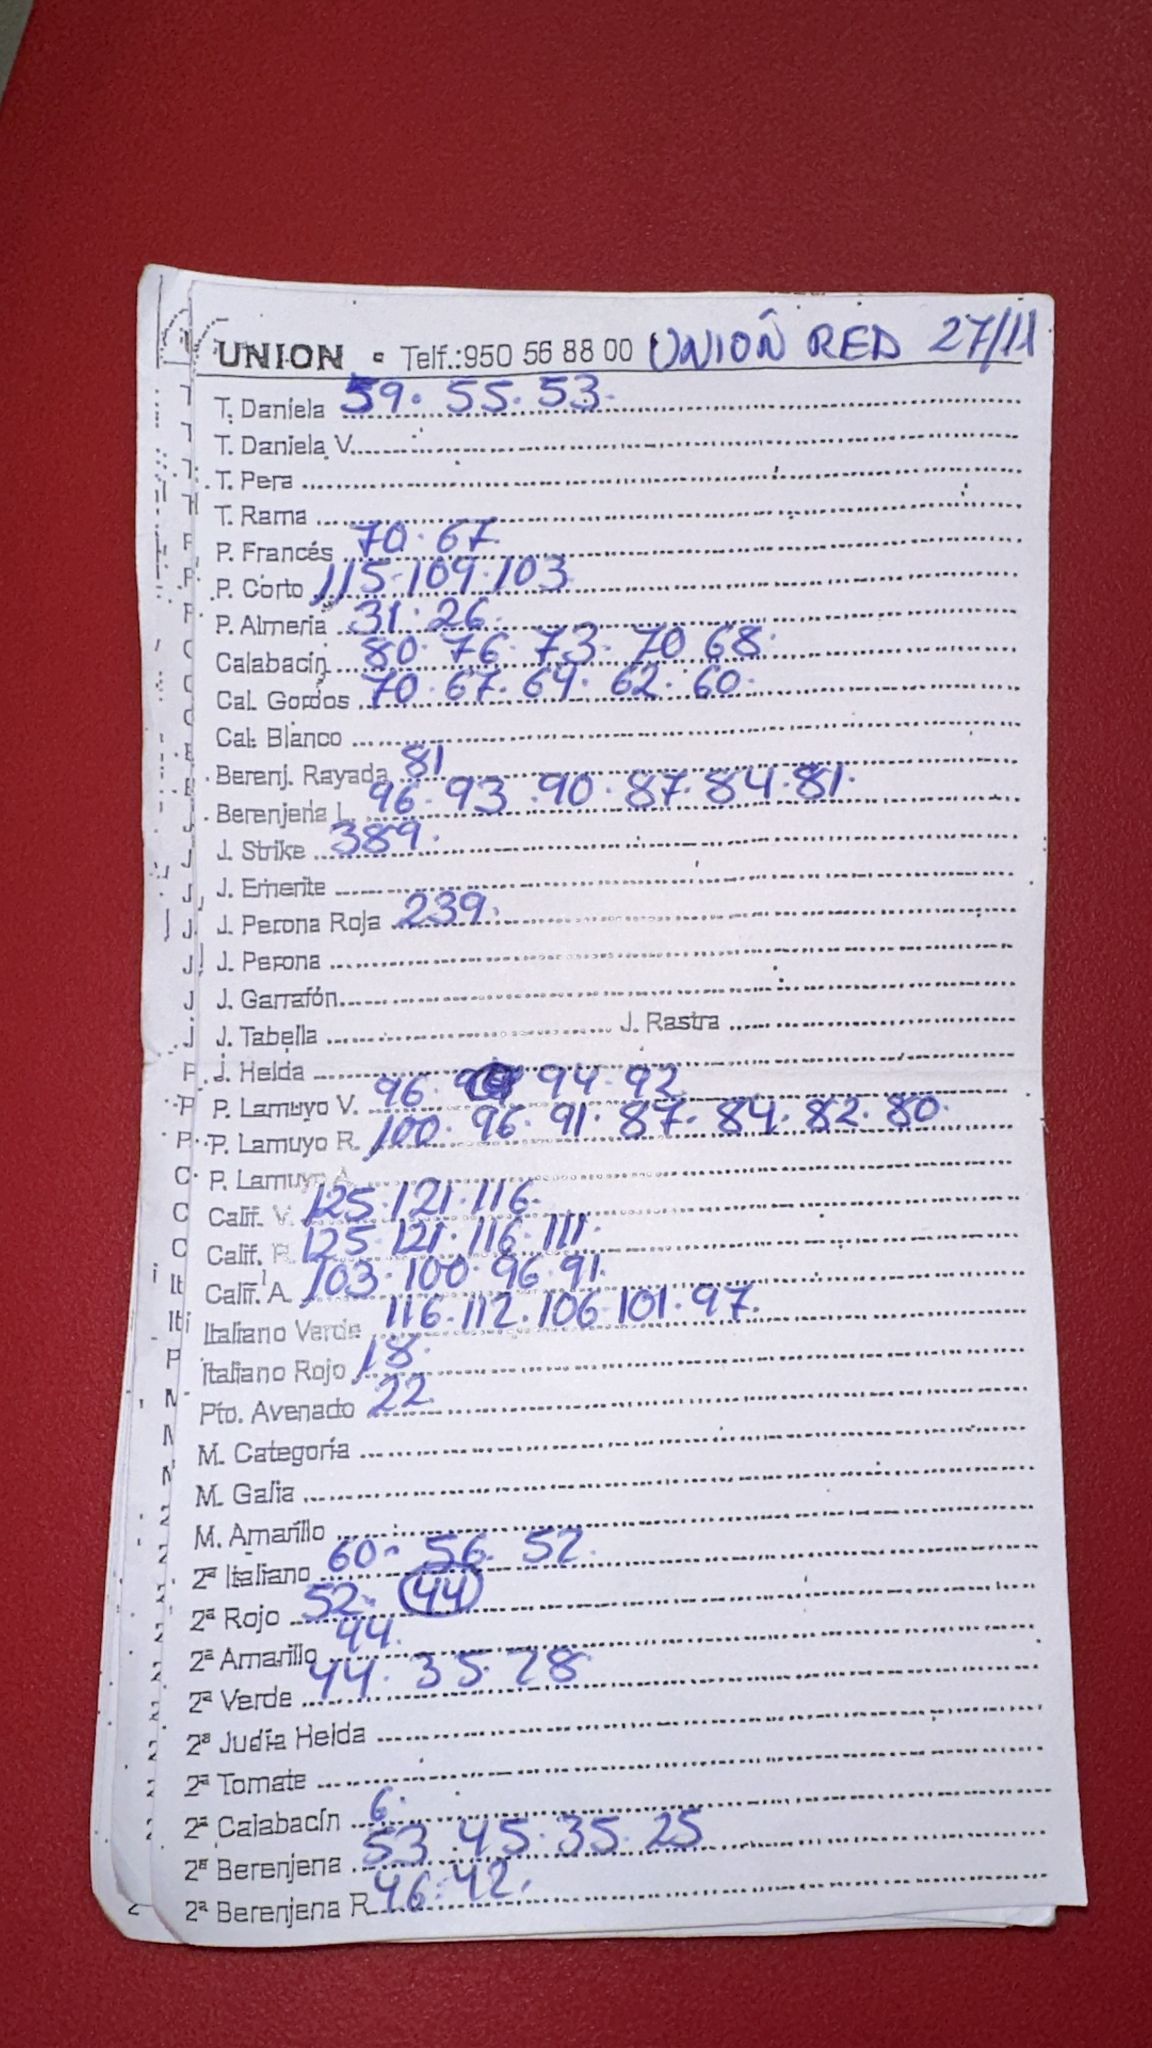 UNION - Telf.:950 56 88 00 UNION RED 27/11
T. Daniela 59. 55. 53.
T. Daniela V.
T. Pera
T. Rama
P. Francés 70. 67.
P. Corto 115. 109. 103
P. Almeria 31. 26.
Calabacín 80. 76. 73. 70 68.
Cal. Gordos 70. 67. 64. 62. 60.
Cal. Blanco
Berenj. Rayada 81
Berenjena L. 96. 93. 90. 87. 84. 81.
J. Strike 389.
J. Emerite
J. Perona Roja 239.
J. Perona
J. Garrafón
J. Tabella J. Rastra
J. Helda
P. Lamuyo V. 96. 94. 92
P. Lamuyo R. 100. 96. 91. 87. 84. 82. 80.
P. Lamuyo A.
Calif. V. 125. 121. 116.
Calif. R. 125. 121. 116. 111.
Calif. A. 103. 100. 96. 91.
Italiano Verde 116. 112. 106. 101. 97.
Italiano Rojo 18.
Pto. Avenado 22.
M. Categoría
M. Galia
M. Amarillo
2ª Italiano 60. 56. 52.
2ª Rojo 52. 44
2ª Amarillo 44.
2ª Verde 44. 35. 28
2ª Judía Helda
2ª Tomate
2ª Calabacín 6.
2ª Berenjena 53. 45. 35. 25
2ª Berenjena R. 46. 42.